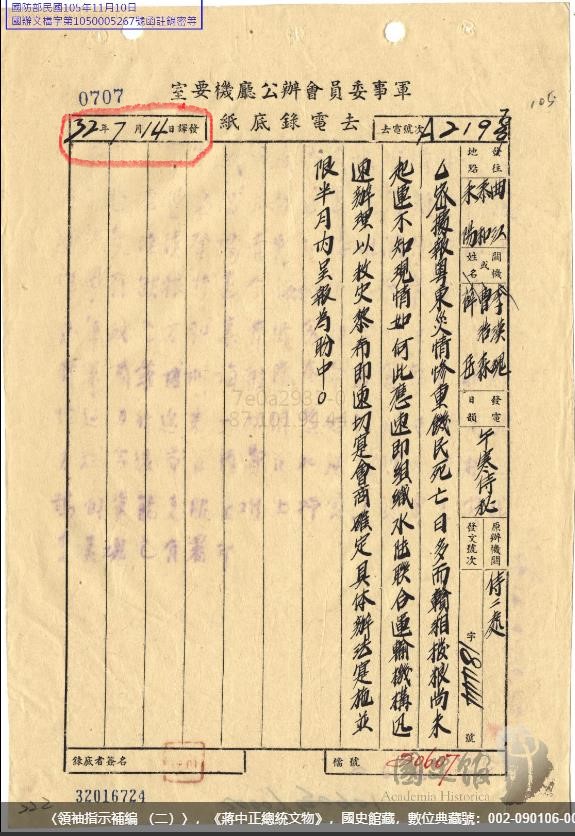 國防部民國105年11月10日
國辦文檔字第1050005267號函註銷密等
0707
軍事委員會辦公廳機要室
去電錄底紙
32年7月14日譯發
去電號次 A219
發往地點 曲江 泰和 耒陽
機關或姓名 李漢魂 曹浩森 薛岳
發電日韻 午寒侍秘
原辦機關 侍二處
發文號次 字 號
密據報粵東災情慘重饑民死亡日多而贛湘撥糧尚未
起運不知現情如何此應速即組織水陸聯合運輸機構迅
速辦理以救災黎希即速切實會商確定具体辦法實施並
限半月內呈報為盼中○
7e0a2980-0
-87.101.94.44
錄底者簽名
檔號 50607
32016724
222
105
國史館
Academia Historica
《領袖指示補編 （二）》，《蔣中正總統文物》，國史館藏，數位典藏號：002-090106-00